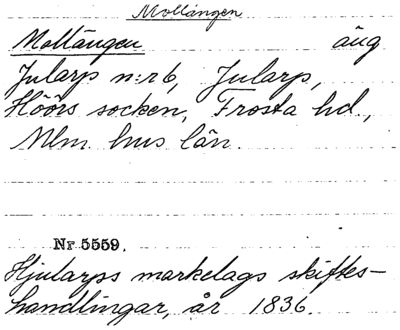 Mollängen
Mollängen äng
Jularp n:r 6, Jularp,
Höörs socken, Frosta hd.,
Mlm. hus län.
Nr 5559.
Hjularps markelags skiftes-
handlingar, år 1836.